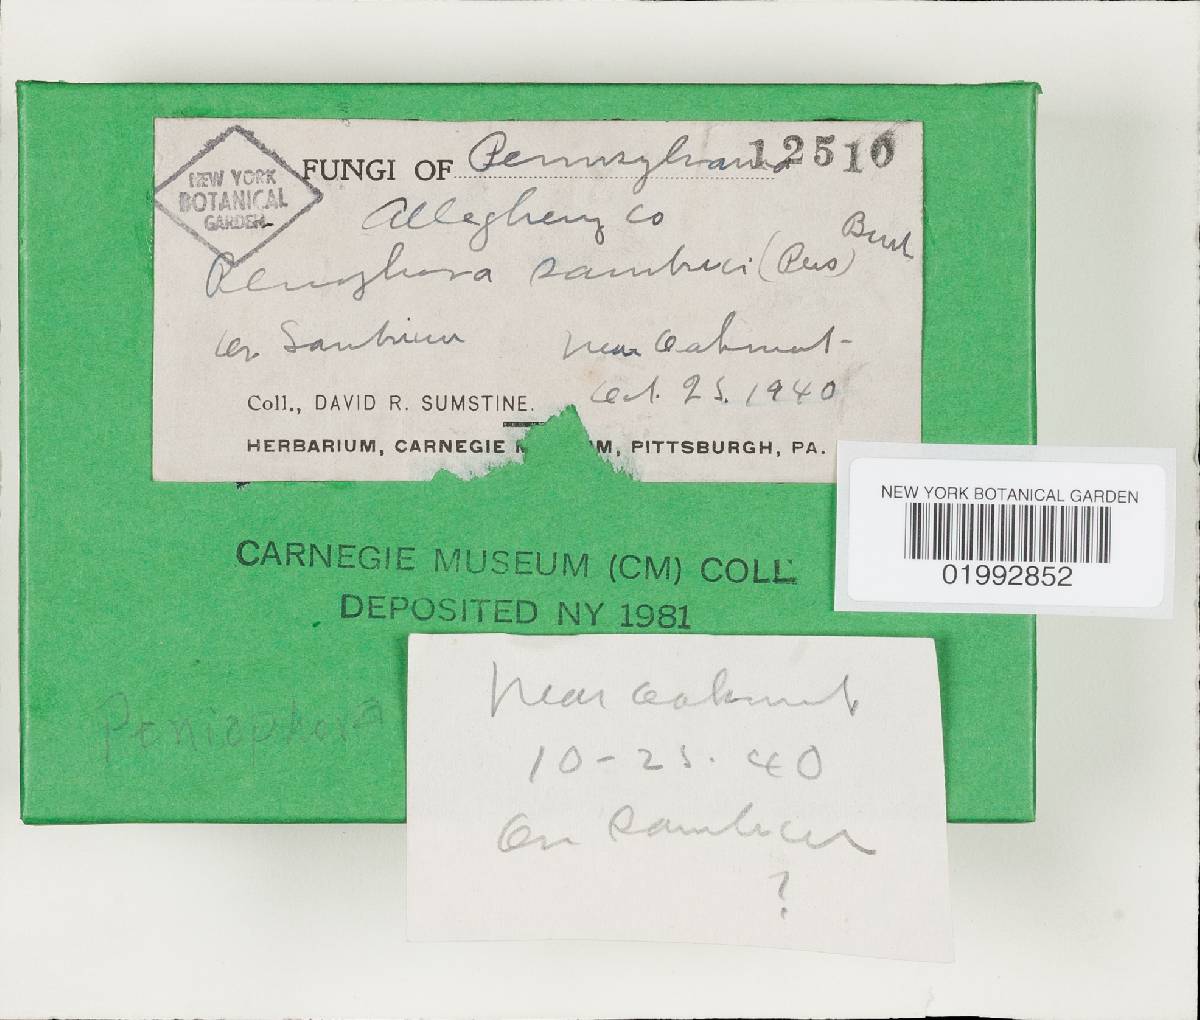 NEW YORK
BOTANICAL
GARDEN
FUNGI OF Pennsylvania 12510
Allegheny Co
Peniophora sambuci (Pers) Burt
on Sambucus near Oakmont
Oct. 25. 1940
Coll., DAVID R. SUMSTINE.
HERBARIUM, CARNEGIE M M, PITTSBURGH, PA.
NEW YORK BOTANICAL GARDEN
01992852
CARNEGIE MUSEUM (CM) COLL
DEPOSITED NY 1981
Peniophora
near Oakmont
10-25. 40
On Sambucus
?